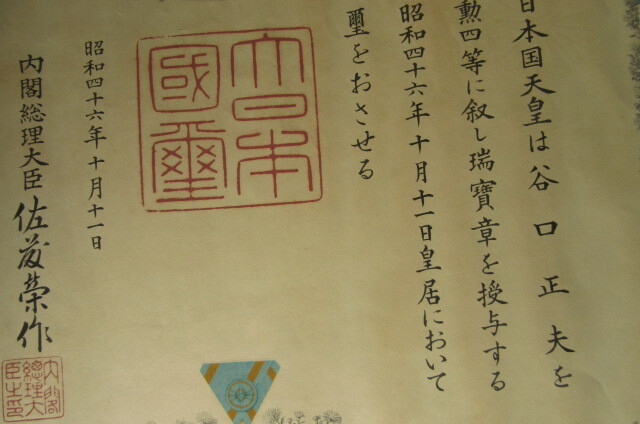 日本国天皇は谷口正夫を
勲四等に叙し瑞寶章を授与する
昭和四十六年十月十一日皇居において
璽をおさせる
大日本國璽
昭和四十六年十月十一日
内閣総理大臣 佐藤榮作
内閣総理大臣之印